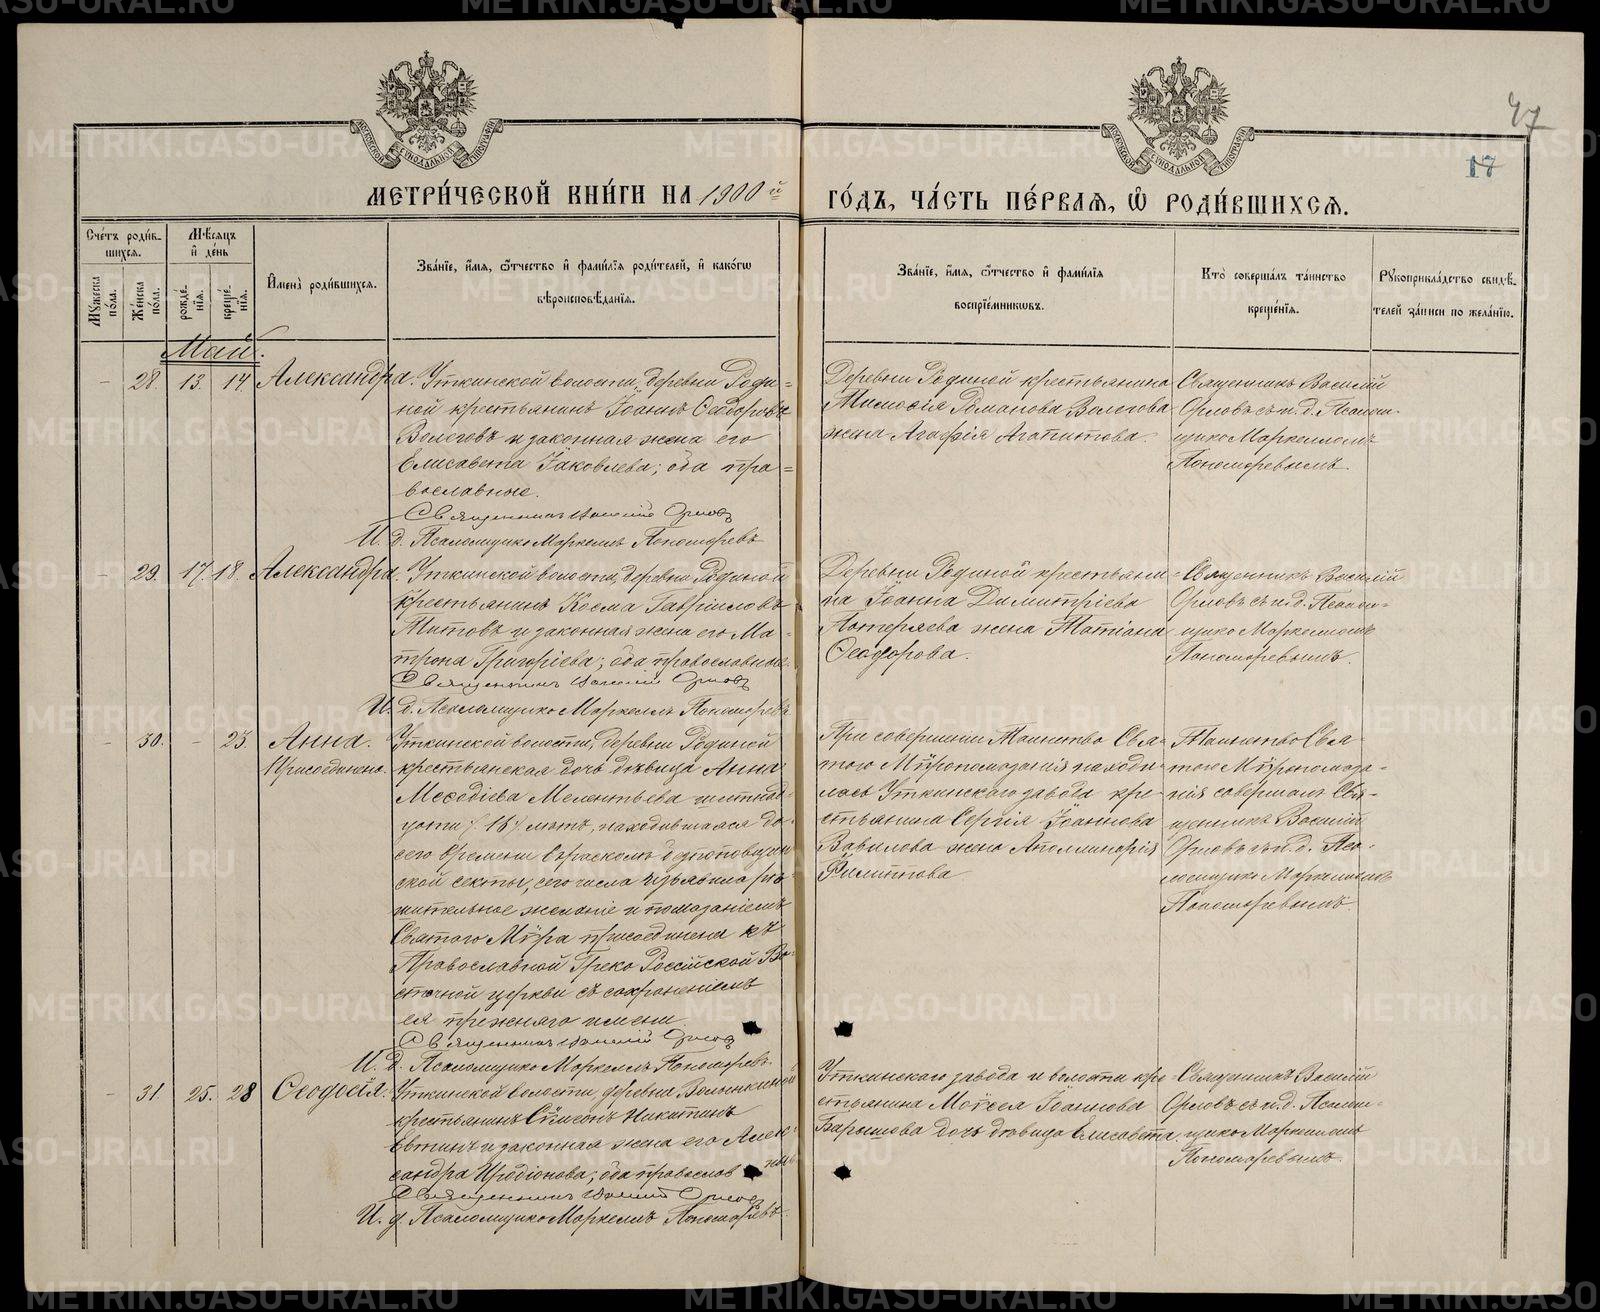 47
17
МЕТРИ́ЧЕСКОЙ КНИ́ГИ НА 1900й ГО́ДЪ, ЧА́СТЬ ПЕ́РВАѦ, Ѡ҆ РОДИ́ВШИХСѦ.
Сче́тъ роди́в-
шихсѧ.
Мꙋжеска по́ла.
Же́нска по́ла.
Мѣ́сѧцъ
и҆ де́нь
рожде́-
нїѧ.
креще́-
нїѧ.
И҆мена̀ роди́вшихсѧ.
Зва́нїе, и҆́мѧ, ѻ҆́тчество и҆ фами́лїѧ роди́телей, и҆ како́гѡ
вѣроисповѣ́данїѧ.
Зва́нїе, и҆́мѧ, ѻ҆́тчество и҆ фами́лїѧ
воспрїе́мниковъ.
Кто̀ соверша́лъ та́инство
креще́нїѧ.
Рꙋкоприкла́дство свидѣ́-
телей за́писи по жела́нїю.
Май.
- 28. 13. 14. Александра.
Уткинской волости, деревни Роди=
ной крестьянинъ Іоаннъ Ѳеодоровъ
Вологовъ и законная жена его
Елисавета Іаковлева; оба пра=
вославные.
Священникъ Василій Орловъ
И. д. Псаломщика Маркеллъ Пономаревъ
Деревни Родиной крестьянина
Тимоѳія Романова Вологова
жена Агафія Агапитова.
Священникъ Василій
Орловъ съ и. д. Псалом-
щика Маркелломъ
Пономаревымъ.
- 29. 17. 18. Александра.
Уткинской волости, деревни Родиной
крестьянинъ Косма Гавріиловъ
Титовъ и законная жена его Ма-
трона Григоріева; оба православные.
Священникъ Василій Орловъ
И. д. Псаломщика Маркеллъ Пономаревъ
Деревни Родиной крестьяни=
на Іоанна Димитріева
Потеряева жена Татіана
Ѳеодорова.
Священникъ Василій
Орловъ съ и. д. Псалом-
щика Маркелломъ
Пономаревымъ.
- 30. - 23. Анна.
Присоединена.
Уткинской волости, деревни Родиной
крестьянская дочь дѣвица Анна
Меѳодіева Мелентьева шестнад-
цати /16/ лѣтъ, находившаяся до
сего времени въ расколѣ безпоповщин
ской секты, сего числа изъявила рѣ-
шительное желаніе и помазаніемъ
Святого Мѵра присоединена къ
Православной Греко Россійской Во-
сточной церкви съ сохраненіемъ
ея прежняго имени.
Священникъ Василій Орловъ
И. д. Псаломщика Маркеллъ Пономаревъ.
При совершеніи Таинства Свя-
того Мѵропомазанія находи-
лась Уткинскаго завода кре-
стьянина Сергія Іоаннова
Вавилова жена Аполлинарія
Филиппова.
Таинство Свя-
того Мѵропомаза-
нія совершалъ Свя-
щенникъ Василій
Орловъ съ и. д. Пса-
ломщика Маркелломъ
Пономаревымъ.
- 31. 25. 28 Ѳеодосія.
Уткинской волости, деревни Волынкиной
крестьянинъ Сѵмеонъ Никитинъ
Евтинъ и законная жена его Алек-
сандра Иродіонова; оба православные
Священникъ Василій Орловъ
И. д. Псаломщика Маркеллъ Пономаревъ.
Уткинскаго завода и волости кре=
стьянина Моѵсея Іоаннова
Барышова дочь дѣвица Елисавета.
Священникъ Василій
Орловъ съ и. д. Псалом-
щика Маркелломъ
Пономаревымъ.
METRIKI.GASO-URAL.RU